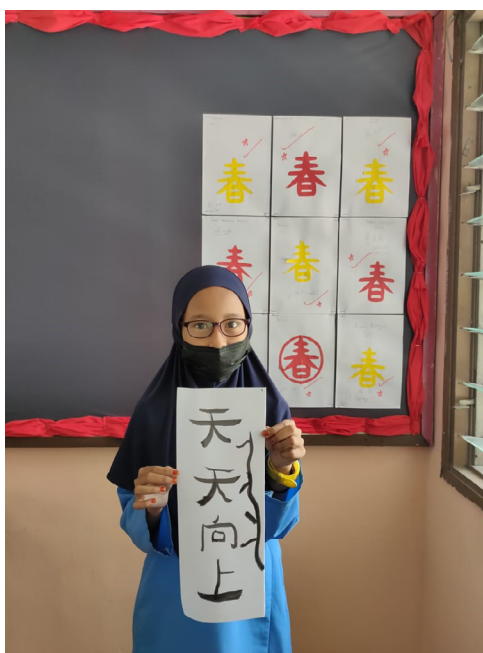 春 春 春
春 春 春
春 春 春
天天向上